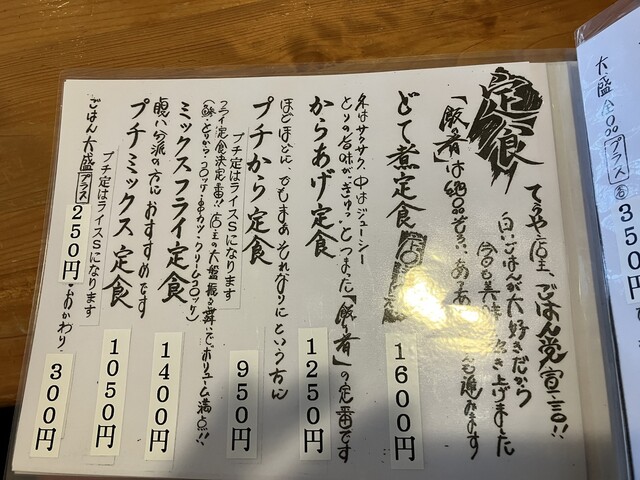 定食
てらや店主、ごはん党宣言!!
白いごはんが大好きだから
今日も美味 炊き上げました
「飯の肴」は絶品ぞろい、あ 進みます
どて煮定食
1600円
外はサクサク 中はジューシー
とりの旨味がぎゅっとつまった「飯の肴」の定番です
からあげ定食
1250円
ほどほどに、でもまあそれなりにという方に
プチから定食
プチ定はライスSになります
950円
フライ定食決定番!! 店主の大盤振る舞いでボリューム満点!!
(鯵・とりから・コロッケ・串カツ・クリームコロッケ)
ミックスフライ定食
1400円
腹八分派の方におすすめです
プチミックス定食
プチ定はライスSになります
1050円
ごはん大盛プラス250円・おかわり・300円
大盛
プラス
350円